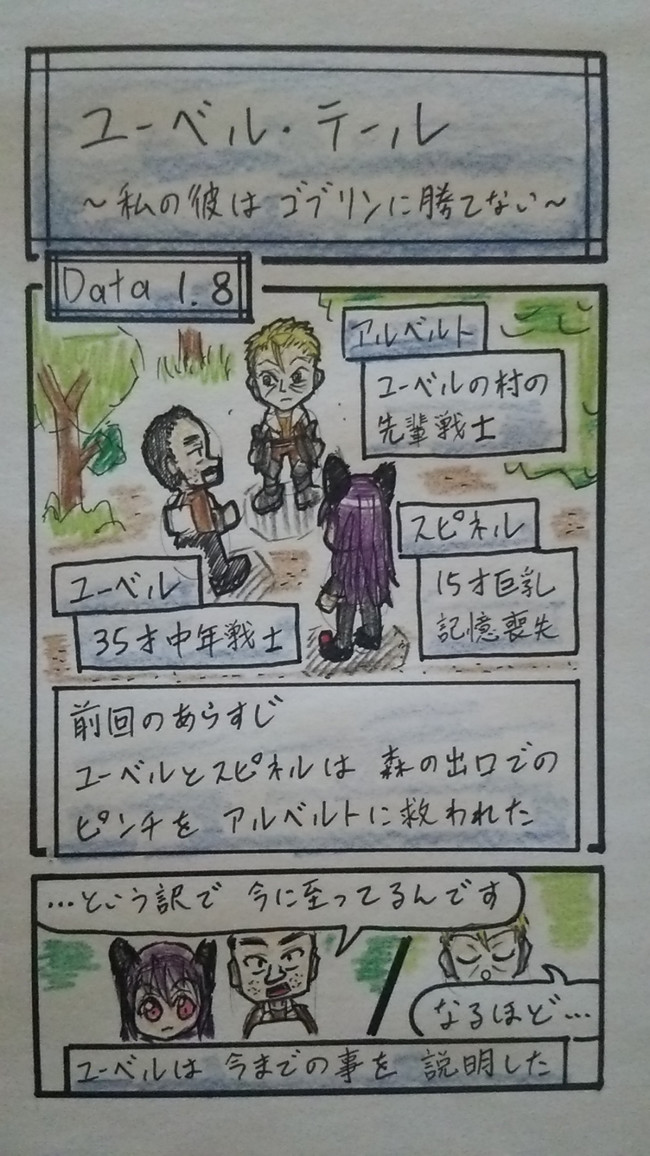 ユーベル・テール
～私の彼はゴブリンに勝てない～
Data 1.8
アルベルト
ユーベルの村の
先輩戦士
スピネル
15才巨乳
記憶喪失
ユーベル
35才中年戦士
前回のあらすじ
ユーベルとスピネルは 森の出口での
ピンチを アルベルトに救われた
…という訳で 今に至ってるんです
なるほど…
ユーベルは 今までの事を 説明した